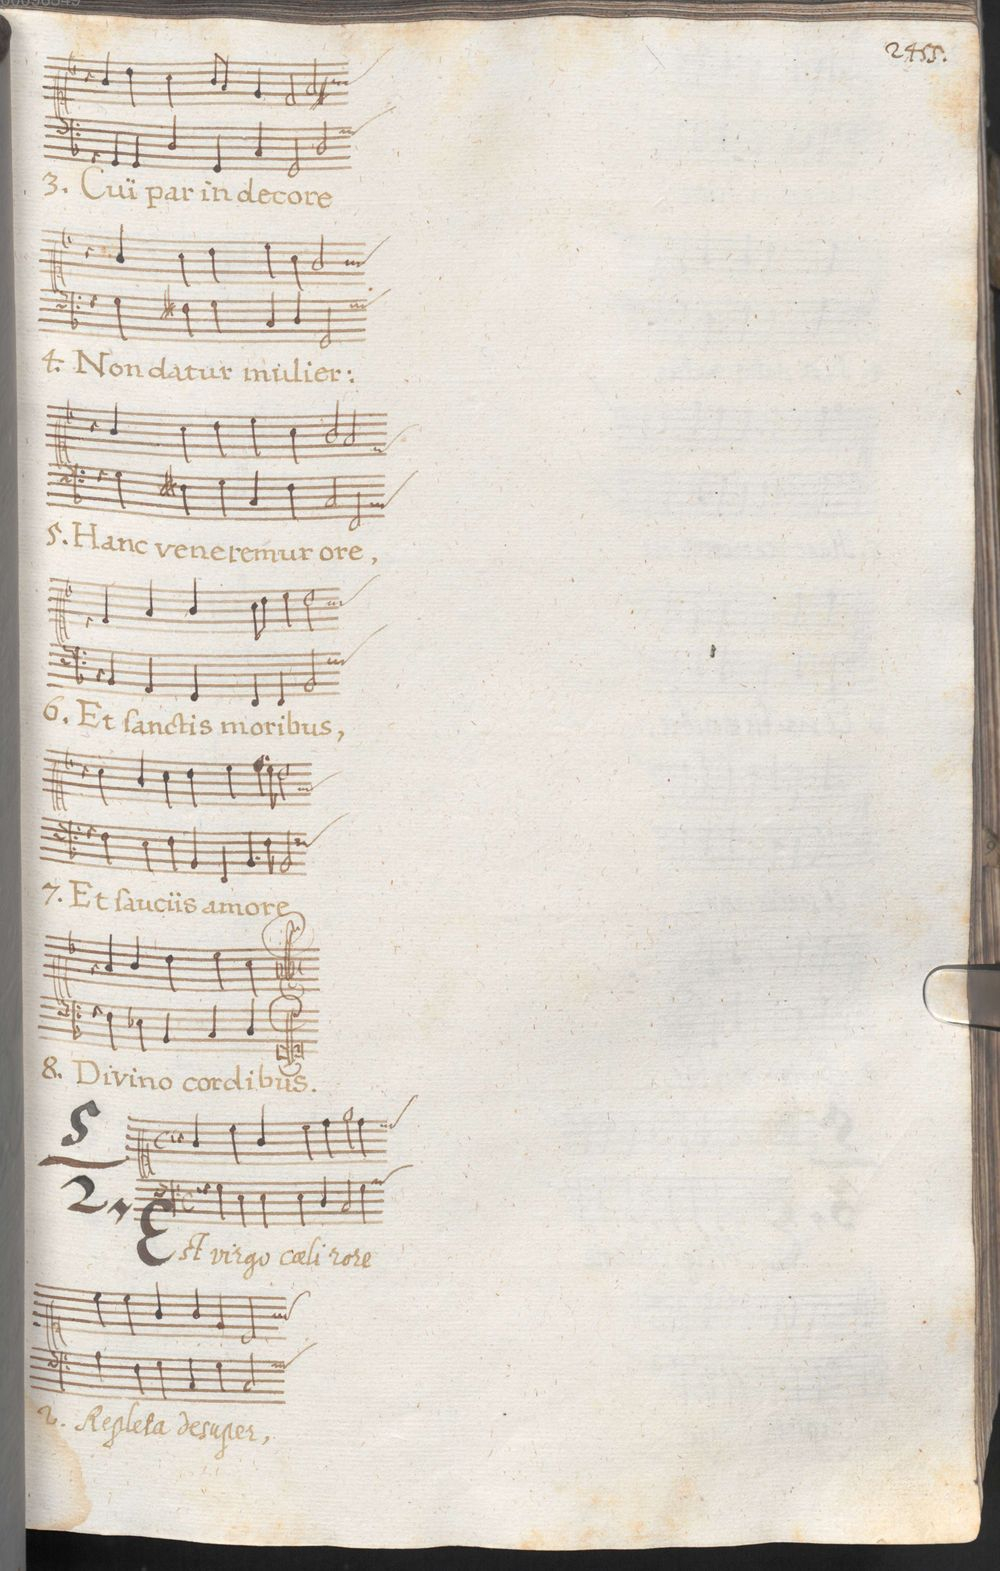 2455.
3. Cuï par in decore
4. Non datur mulier:
5. Hanc veneremur ore,
6. Et sanctis moribus,
7. Et sauciis amore
8. Divino cordibus.
5
2, Est virgo cœli rore
2. Repleta desuper,